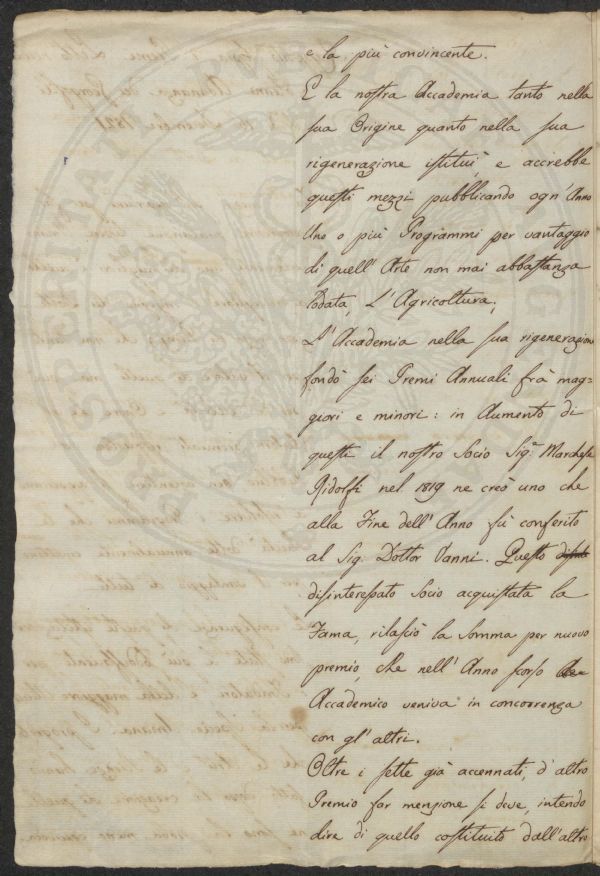 e la più convincente.
E la nostra Accademia tanto nella
sua Origine quanto nella sua
rigenerazione istituì, e accrebbe
questi mezzi pubblicando ogn'Anno
Uno o più Programmi per vantaggio
di quell'Arte non mai abbastanza
lodata, L'Agricoltura.
L'Accademia nella sua rigenerazione
fondò sei Premi Annuali frà mag=
giori e minori: in Aumento di
questi il nostro Socio Sig.r Marchese
Ridolfi nel 1819 ne creò uno che
alla Fine dell'Anno fù conferito
al Sig. Dottor Vanni. Questo
disinteressato Socio acquistata la
Fama, rilasciò la Somma per nuovo
premio, che nell'Anno scorso
Accademico veniva in concorrenza
con gl'altri.
Oltre i sette già accennati, d'altro
Premio far menzione si deve, intendo
dire di quello costituito dall'altro